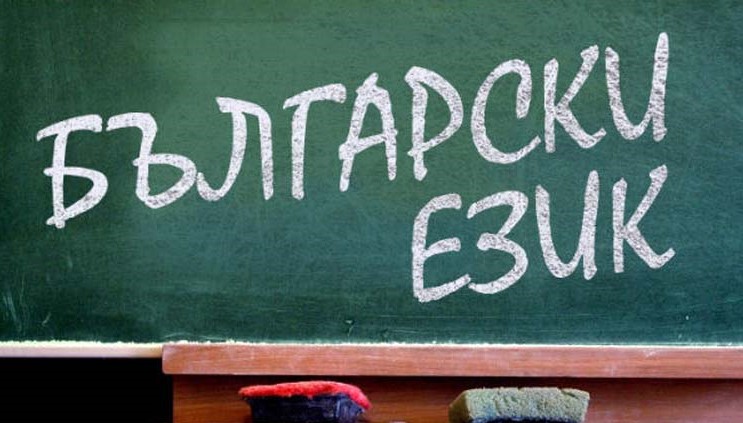 БЪЛГАРСКИ
ЕЗИК